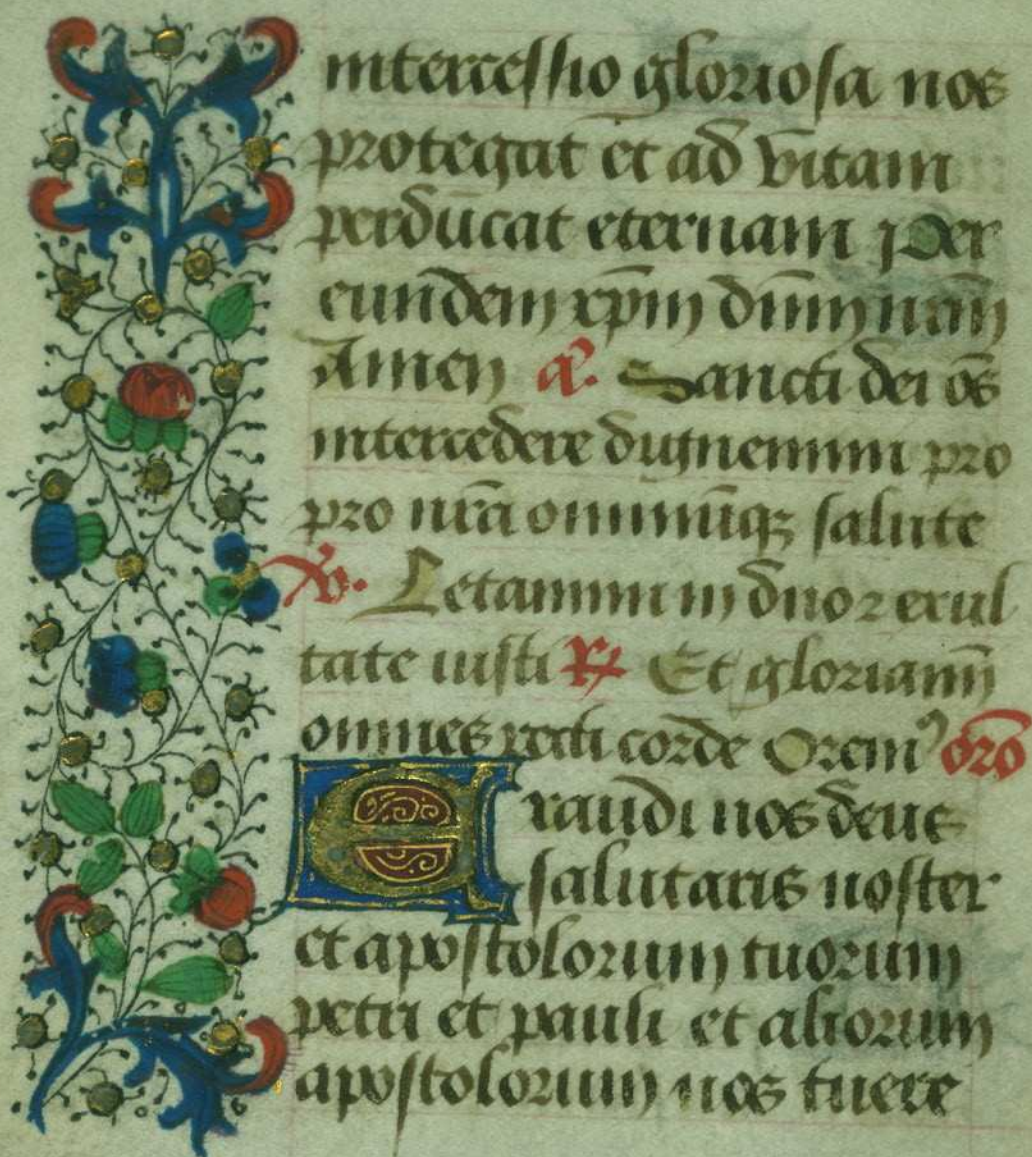 intercessio gloriosa nos
protegat et ad vitam
perducat eternam Per
eundem xp̄m dn̄m nr̄m
Amen an̄. Sancti dei om̄s
intercedere dignemini pro
pro nr̄a omniūq; salute
℣. Letamini in dn̄o ⁊ exul
tate iusti ℞ Et gloriamī
omnes recti corde Oremꝰ or̄o
Exaudi nos deus
salutaris noster
et apostolorum tuorum
petri et pauli et aliorum
apostolorum nos tuere